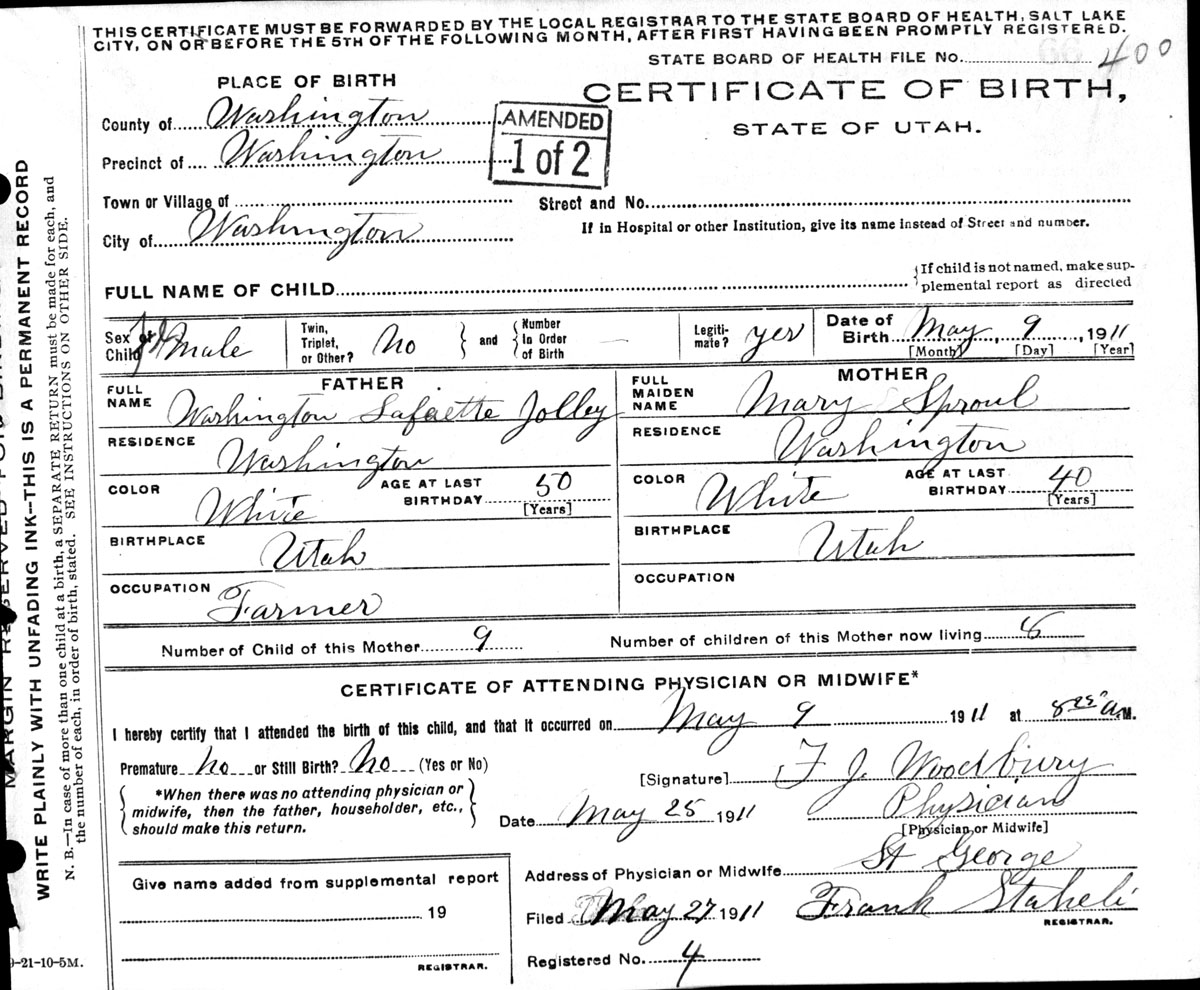 THIS CERTIFICATE MUST BE FORWARDED BY THE LOCAL REGISTRAR TO THE STATE BOARD OF HEALTH, SALT LAKE
CITY, ON OR BEFORE THE 5TH OF THE FOLLOWING MONTH, AFTER FIRST HAVING BEEN PROMPTLY REGISTERED.
STATE BOARD OF HEALTH FILE No. 400
PLACE OF BIRTH
CERTIFICATE OF BIRTH,
STATE OF UTAH.
County of Washington
AMENDED
1 of 2
Precinct of Washington
Town or Village of
Street and No.
City of Washington
If in Hospital or other Institution, give its name instead of Street and number.
FULL NAME OF CHILD
{If child is not named, make sup-
plemental report as directed
Sex of Child Male
Twin, Triplet, or Other? No
and
Number In Order of Birth —
Legiti-mate? yes
Date of Birth May, 9, 1911
[Month] [Day] [Year]
FATHER
FULL NAME Washington Lafaiette Jolley
RESIDENCE Washington
COLOR White
AGE AT LAST BIRTHDAY 50
[Years]
BIRTHPLACE Utah
OCCUPATION Farmer
MOTHER
FULL MAIDEN NAME Mary Sproul
RESIDENCE Washington
COLOR White
AGE AT LAST BIRTHDAY 40
[Years]
BIRTHPLACE Utah
OCCUPATION
Number of Child of this Mother 9
Number of children of this Mother now living
CERTIFICATE OF ATTENDING PHYSICIAN OR MIDWIFE*
I hereby certify that I attended the birth of this child, and that it occurred on May 9 1911 at 8 25 a.M.
Premature No or Still Birth? No (Yes or No)
[Signature] F J Woodbury
*When there was no attending physician or
midwife, then the father, householder, etc.,
should make this return.
Date May 25 1911
Physician
[Physician or Midwife]
Address of Physician or Midwife St George
Give name added from supplemental report
19
REGISTRAR.
Filed May 27 1911
Frank Staheli
REGISTRAR.
Registered No. 4
9-21-10-5M.
MARGIN RESERVED FOR
WRITE PLAINLY WITH UNFADING INK—THIS IS A PERMANENT RECORD
N. B.—In case of more than one child at a birth, a SEPARATE RETURN must be made for each, and
the number of each, in order of birth, stated. SEE INSTRUCTIONS ON OTHER SIDE.